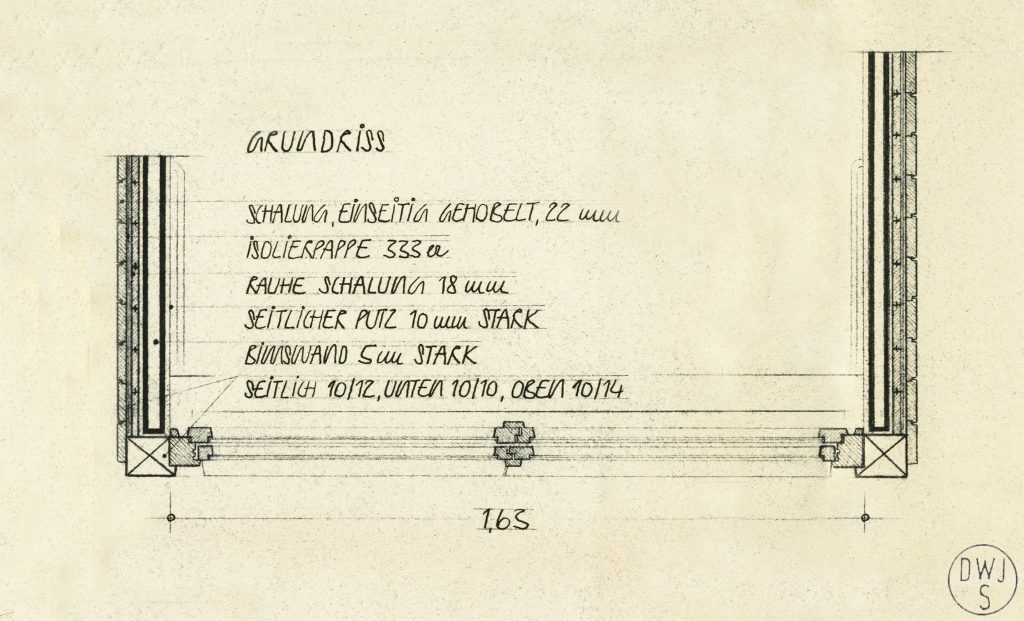 GRUNDRISS
SCHALUNG, EINSEITIG GEHOBELT, 22 mm
ISOLIERPAPPE 333er
RAUHE SCHALUNG 18 mm
SEITLICHER PUTZ 10 mm STARK
BIMSWAND 5 cm STARK
SEITLICH 10/12, UNTEN 10/10, OBEN 10/14
1,63
DWJ
S